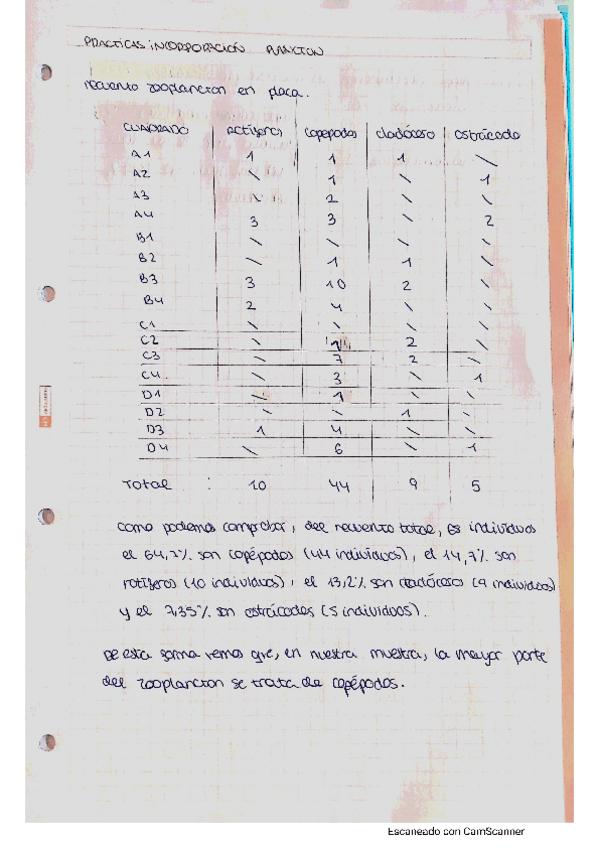 PRACTICAS INCORPORACIÓN PLANCTON
recuento zooplancton en placa.
CUADRADO rotíferos copépodos cladócero ostrácodo
A1 1 1 1 \
A2 \ 1 \ 1
A3 \ 2 \ \
A4 3 3 \ 2
B1 \ \ \ \
B2 \ 1 1 \
B3 3 10 2 \
B4 2 4 \ \
C1 \ \ \ \
C2 \ 1 2 \
C3 \ 7 2 \
C4 \ 3 \ 1
D1 \ 1 \ \
D2 \ \ 1 \
D3 1 4 \ \
D4 \ 6 \ 1
Total : 10 44 9 5
como podemos comprobar, del recuento total, 68 individuos
el 64,7% son copépodos (44 individuos), el 14,7% son
rotíferos (10 individuos), el 13,2% son cladóceros (9 individuos)
y el 7,35% son ostrácodos (5 individuos).
De esta forma vemos que, en nuestra muestra, la mayor parte
del zooplancton se trata de copépodos.
Escaneado con CamScanner